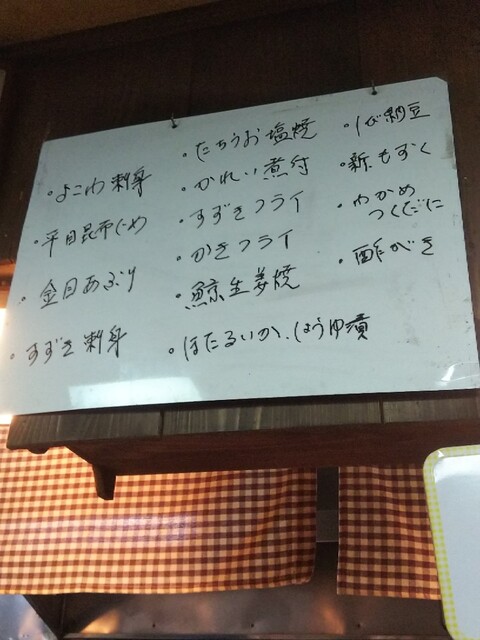 ・よこわ刺身
・平目昆布じめ
・金目あぶり
・すずき刺身
・たちうお塩焼
・かれい煮付
・すずきフライ
・かきフライ
・鯨生姜焼
・ほたるいか、しょうゆ漬
納豆
・新もずく
・わかめ
つくだに
・酢がき